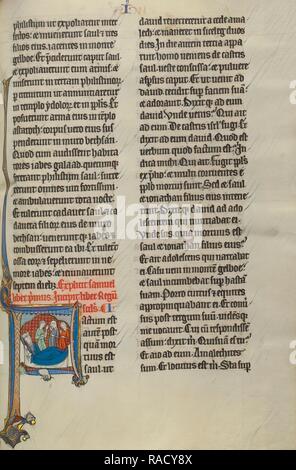 philistiim ut expoliarent inter
fectos: & inuenerunt saul & tres
filios eius iacentes in monte
gelboe. Et caput saul
& expoliauerunt eum armis: &
miserunt in terram philistinor
per circuitum ut annunciaretur
in templo ydolor. et in pplis. Et
posuerunt arma eius in templo
astaroth: corpus uero eius sus
in muro bethsan.
Quod cum audissent habita
tores iabes galaad quecumq
fecerant philistiim saul: surre
xerunt omnes uiri fortissimi
& ambulauerunt tota nocte.
Et tulerunt cadauer saul & ca
dauera filior eius de muro
bethsan: ueneruntq iabes &
combusserunt ea ibi. Et tulerunt
ossa eor & sepelierunt in ne
more iabes: & ieiunauerunt
septem dieb. Explicit samuel
liber primus. Incipit liber Regum
scds.
actum est
autem post
quam mor
tuus est
saul ut
dauid reuerteretur a cede amale
ch: & maneret in siceleg duos
dies. In die autem tercia appa
ruit homo ueniens de castris
saul. ueste conscissa & puluere
aspsus caput. Et ut uenit ad
dauid. cecidit sup faciem suam
& adorauit. Dixitq ad eum
dauid. Unde uenis. Qui ait
ad eum. De castris isrl fugi. Et
dixit ad eum dauid. Quod est
uerbum quod factum est. In
dica michi. Qui ait. Fugit pplus
ex plio: & multi corruentes e
pplo mortui sunt. Sed & saul
& ionathan filius eius
Dixitq dauid ad
adolescentem qui nuntiabat ei.
Unde scis quia mortuus est
saul & ionathan filius eius.
Et ait adolescens qui narrabat
ei. Casu ueni in montem gelboe.
& saul incumbebat sup hastam
suam. Porro currus & equites
appropinquabant ei. Et con
uersus post tergum suum. uidensq
me uocauit. Cui cum respondisse
assum: dixit m. Quisnam es tu.
Et aio ad eum. Amalechites
sum. Et locutus est m. Sta sup
alamy stock photo
RACY8X
www.alamy.com